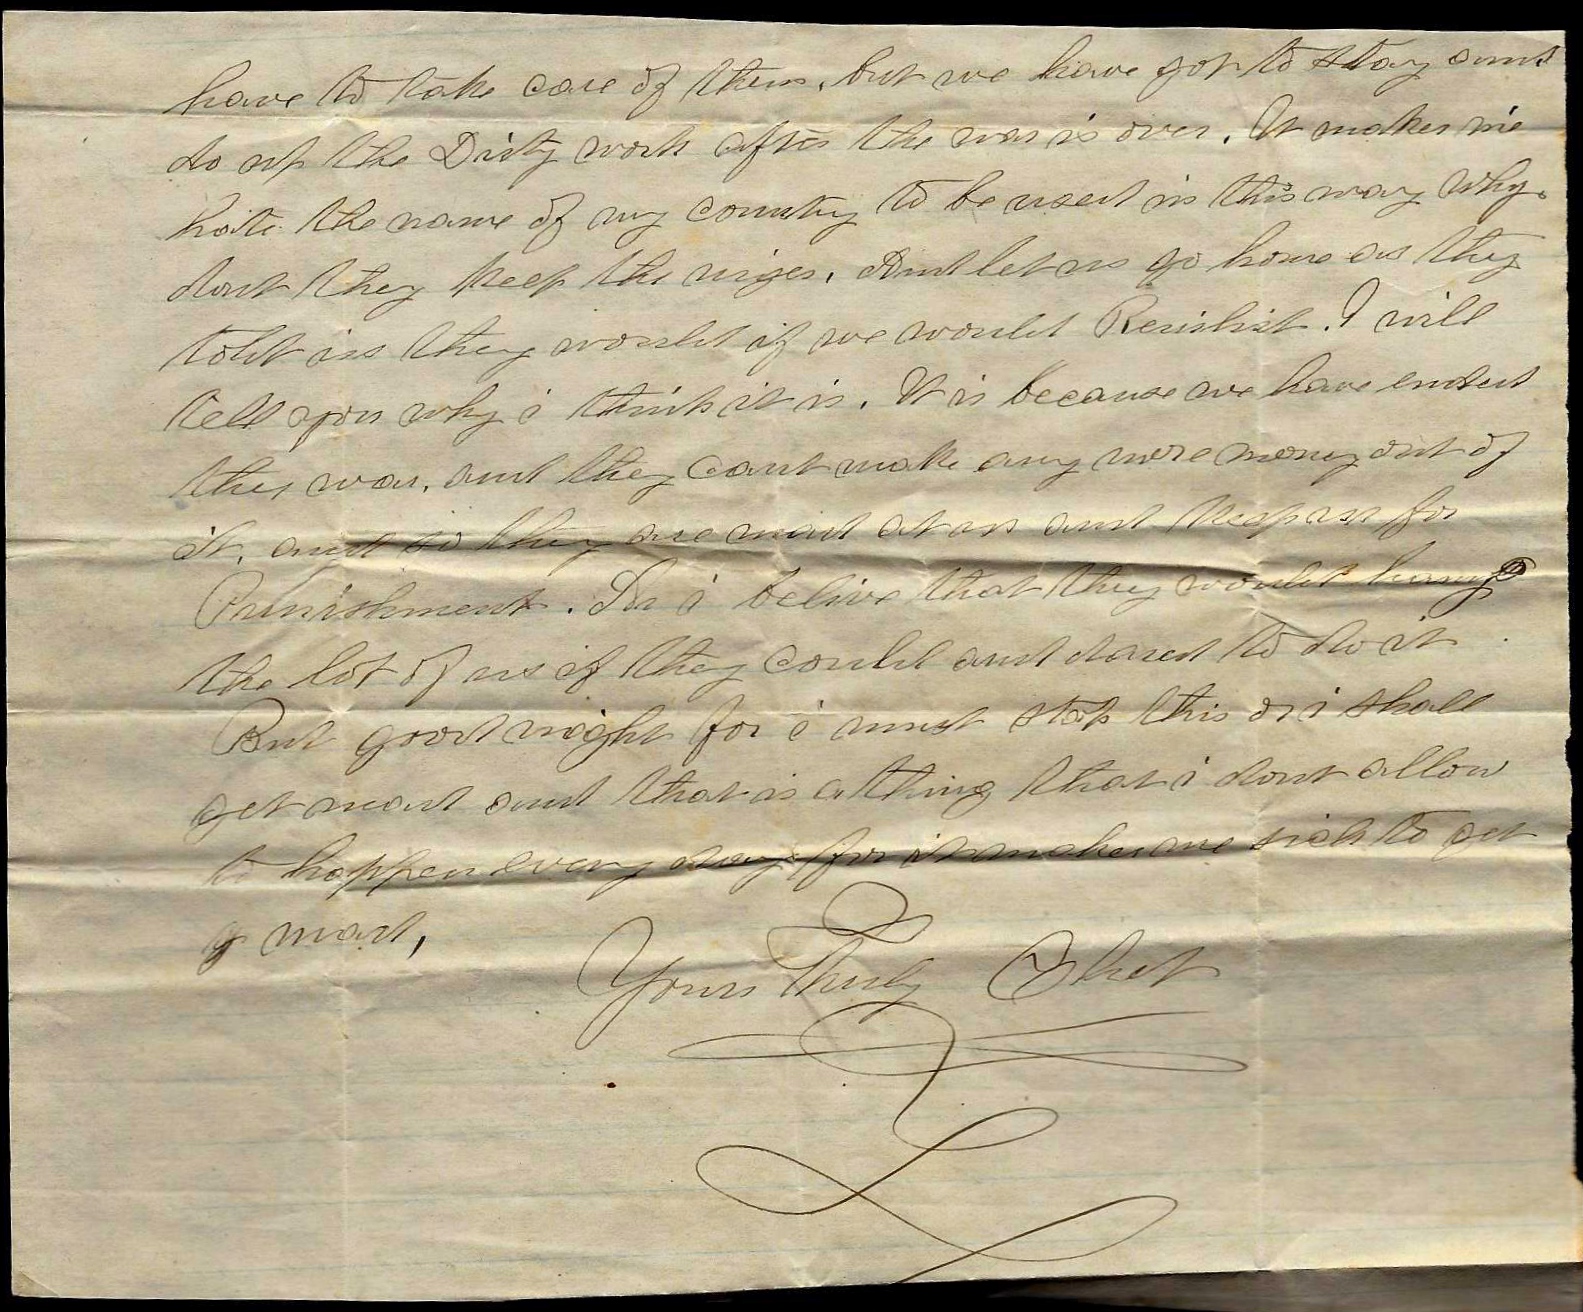 have to take care of them, but we have got to stay and
do up the Dirty work after the war is over. It makes me
hate the name of my country to be used in this way why
dont they keep the niges, And let us go home as they
told us they would if we would Reinlist. I will
tell you why i think it is. It is because we have ended
this war, and they cant make any more money out of
it, and so they are mad at us and keep us for
Punishment. For i belive that they would hang
the lot of us if they could and dared to do it
But good night for i must stop this or i shall
get mad and that is a thing that i dont allow
to happen every day for it makes me sick to get
mad,
Yours Truly Chet